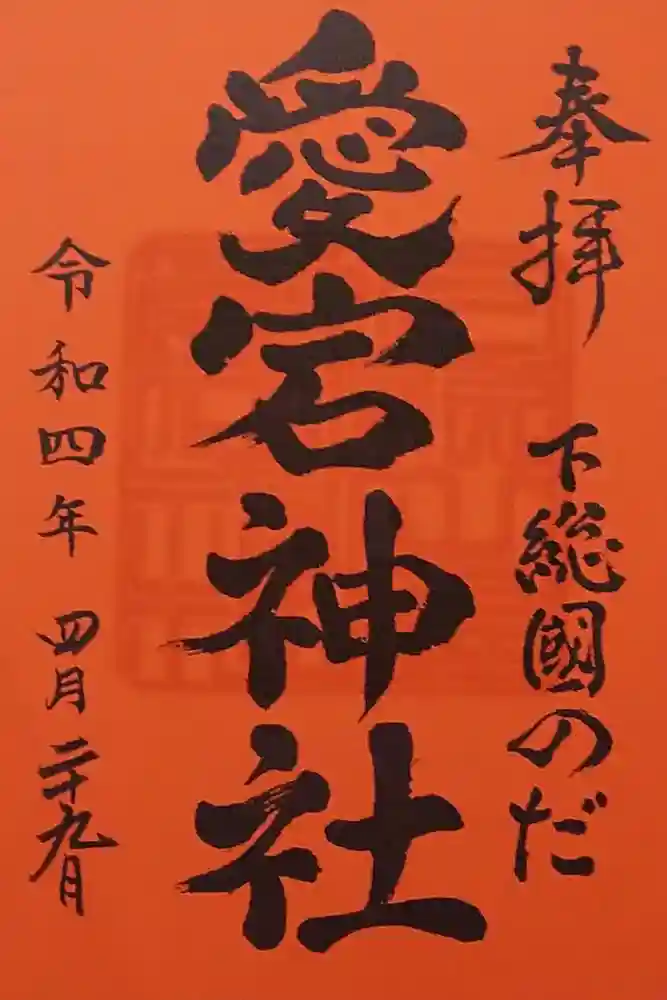 奉拝 下総國のだ
愛宕神社
令和四年 四月二十九日